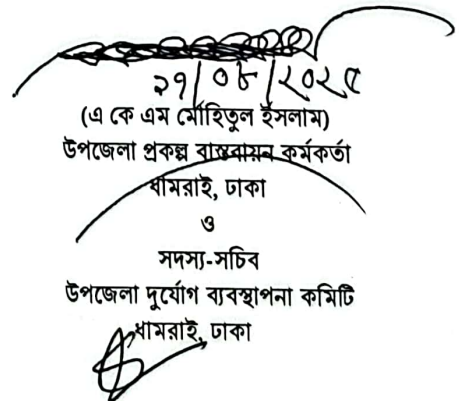 ২৭/০৮/২০২৫
(এ কে এম মোহিতুল ইসলাম)
উপজেলা প্রকল্প বাস্তবায়ন কর্মকর্তা
ধামরাই, ঢাকা
ও
সদস্য-সচিব
উপজেলা দুর্যোগ ব্যবস্থাপনা কমিটি
ধামরাই, ঢাকা